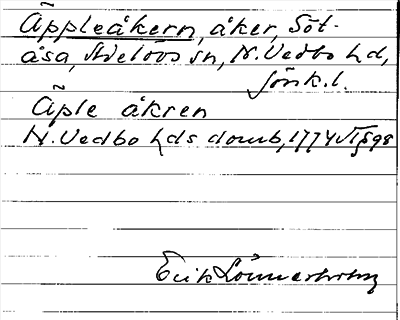 Äppleåkern, åker, Söt-
åsa, Adelövs sn, N. Vedbo hd,
Jönk. l.
Äple åkren
N. Vedbo hds domb, 1774 VT § 98
Erik Lönnerholm